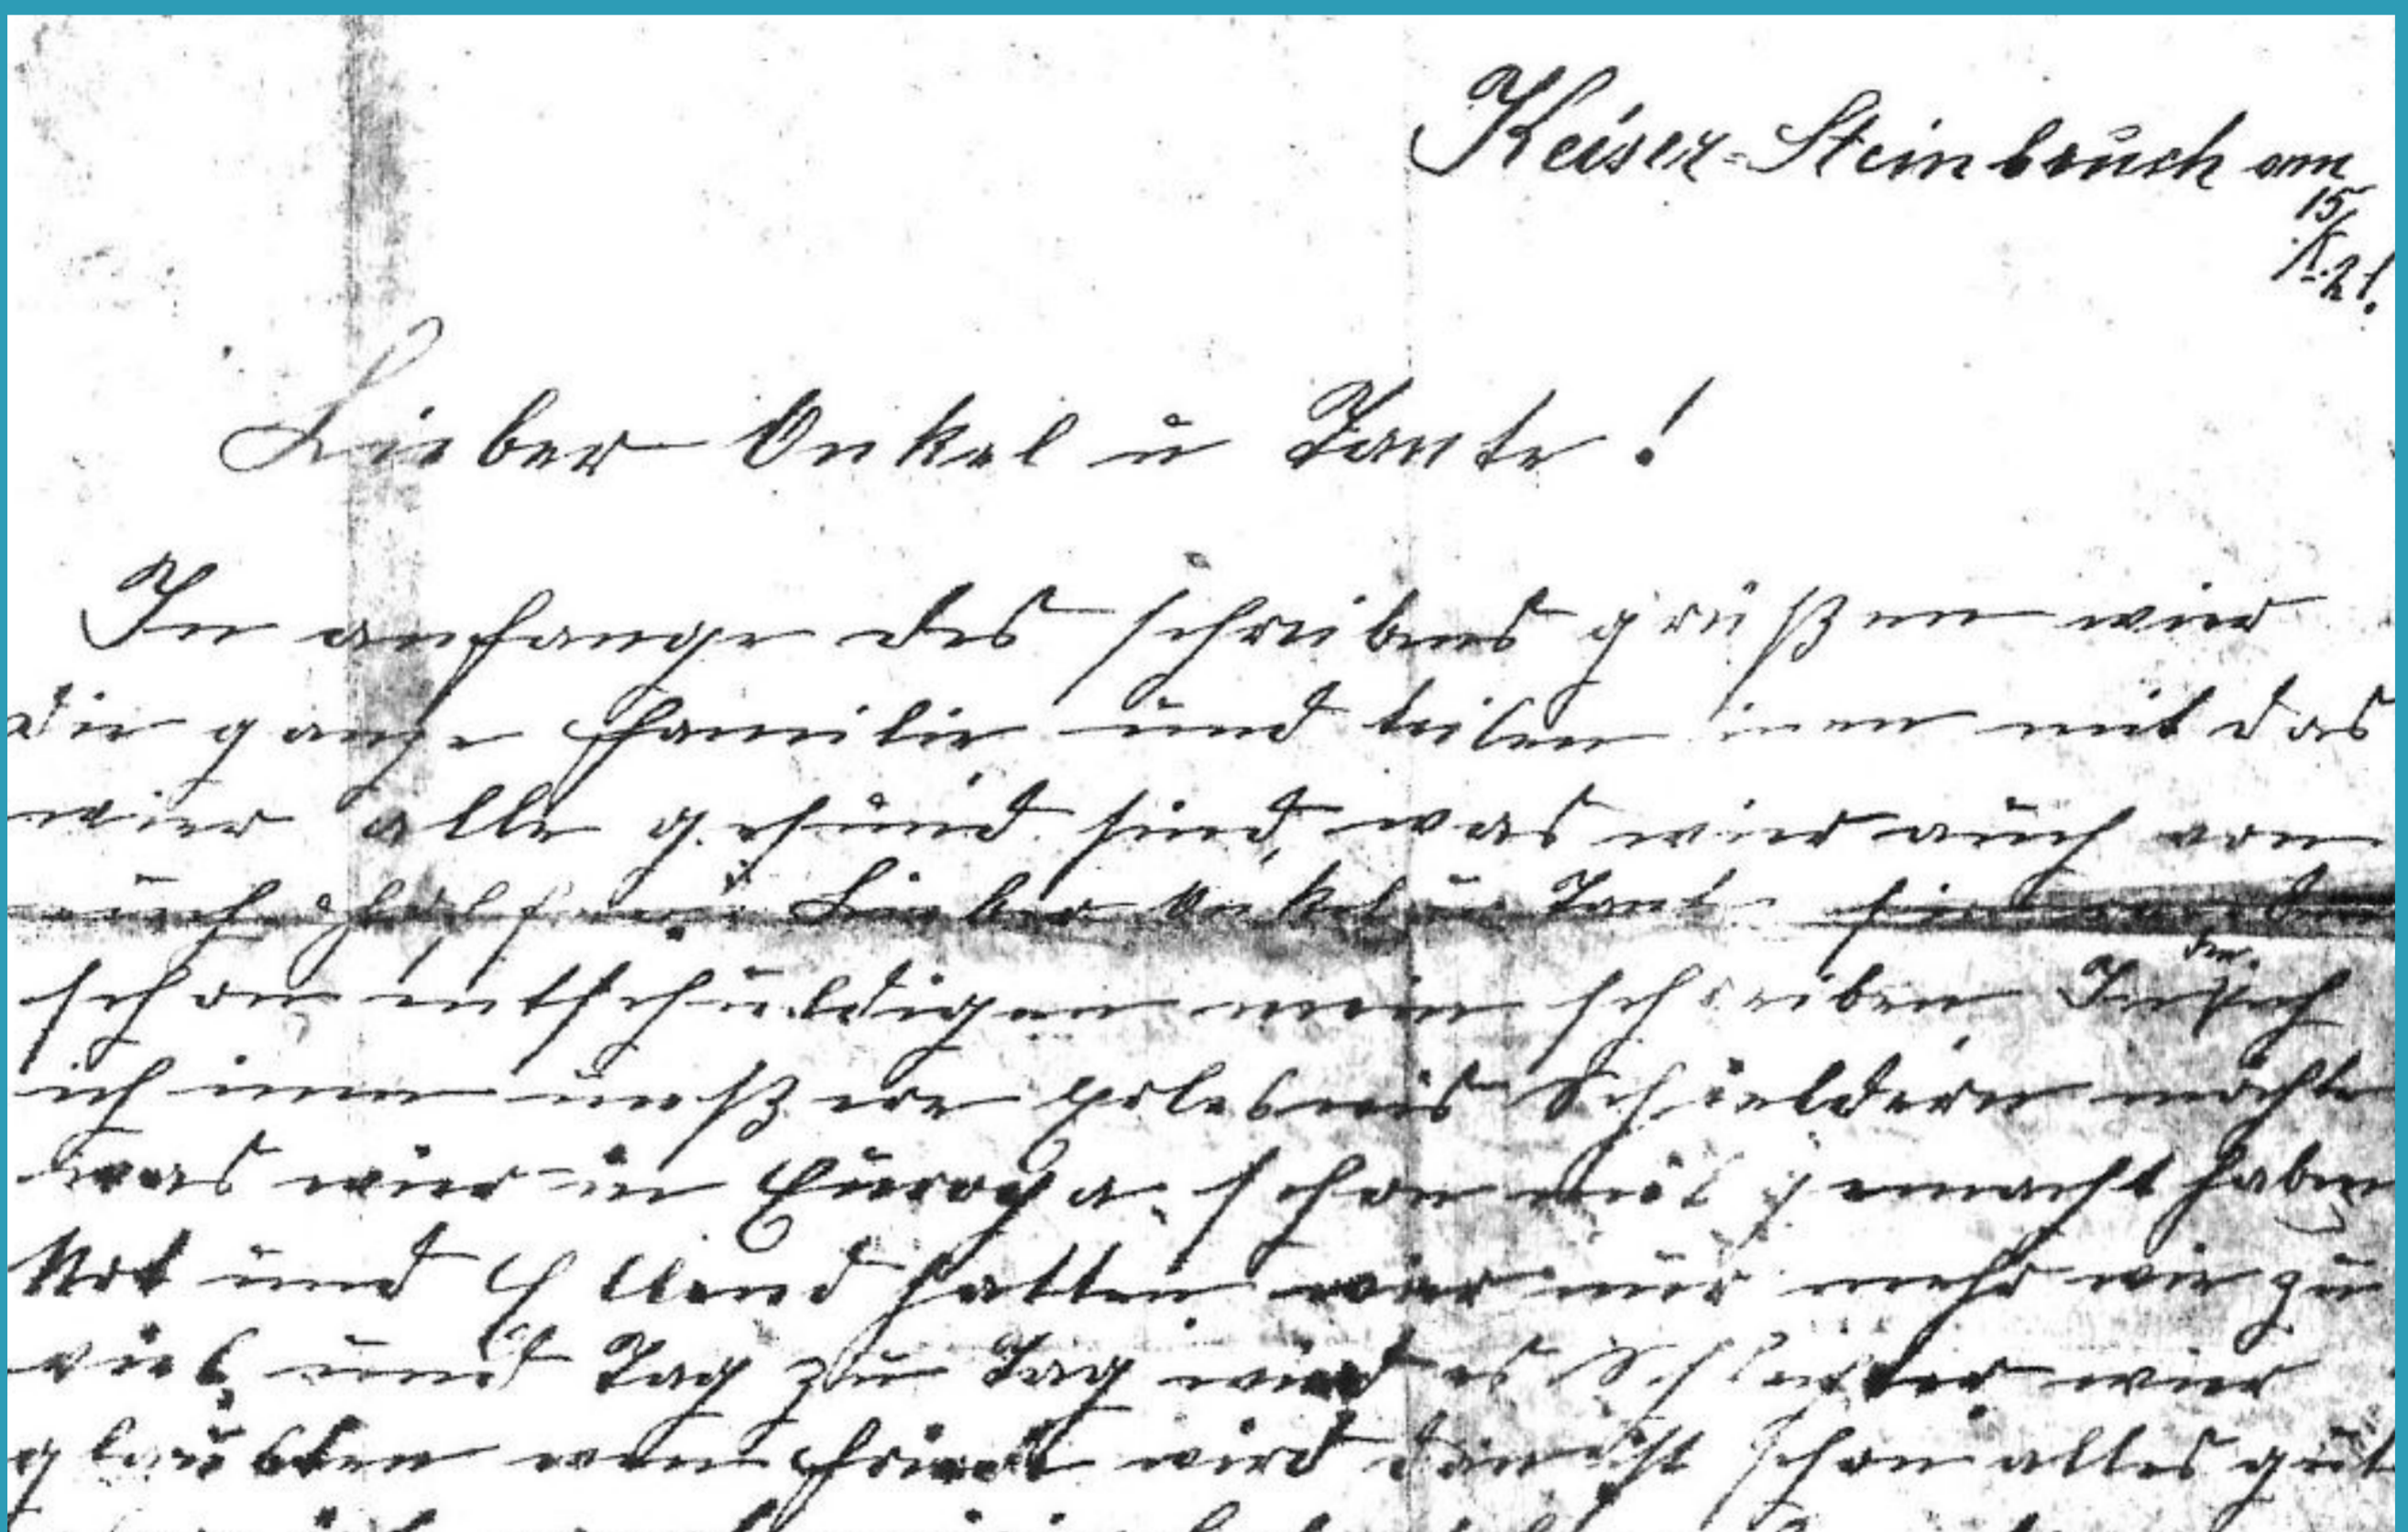 Keiser-Steinbruch am
15/
X. 21.
Lieber Onkel u Tante!
In anfange des schreibens grüßen wier
die ganze Familie und teilen inen mit das
wier alle gesund sind, was wier auch von
euch hoffen. Lieber Onkel u Tante
schon entschuldigen mein schreiben, In dem sich
ich inen unßere Erlebnis Schieldern möchte
was wier in Europa schon mit gemacht haben
Not und Ellend hatten wier nur mehr wie zu
viel, und Tag zu Tag wird es Schlechter wier
glaubten wen Friede wird dan ist schon alles gut